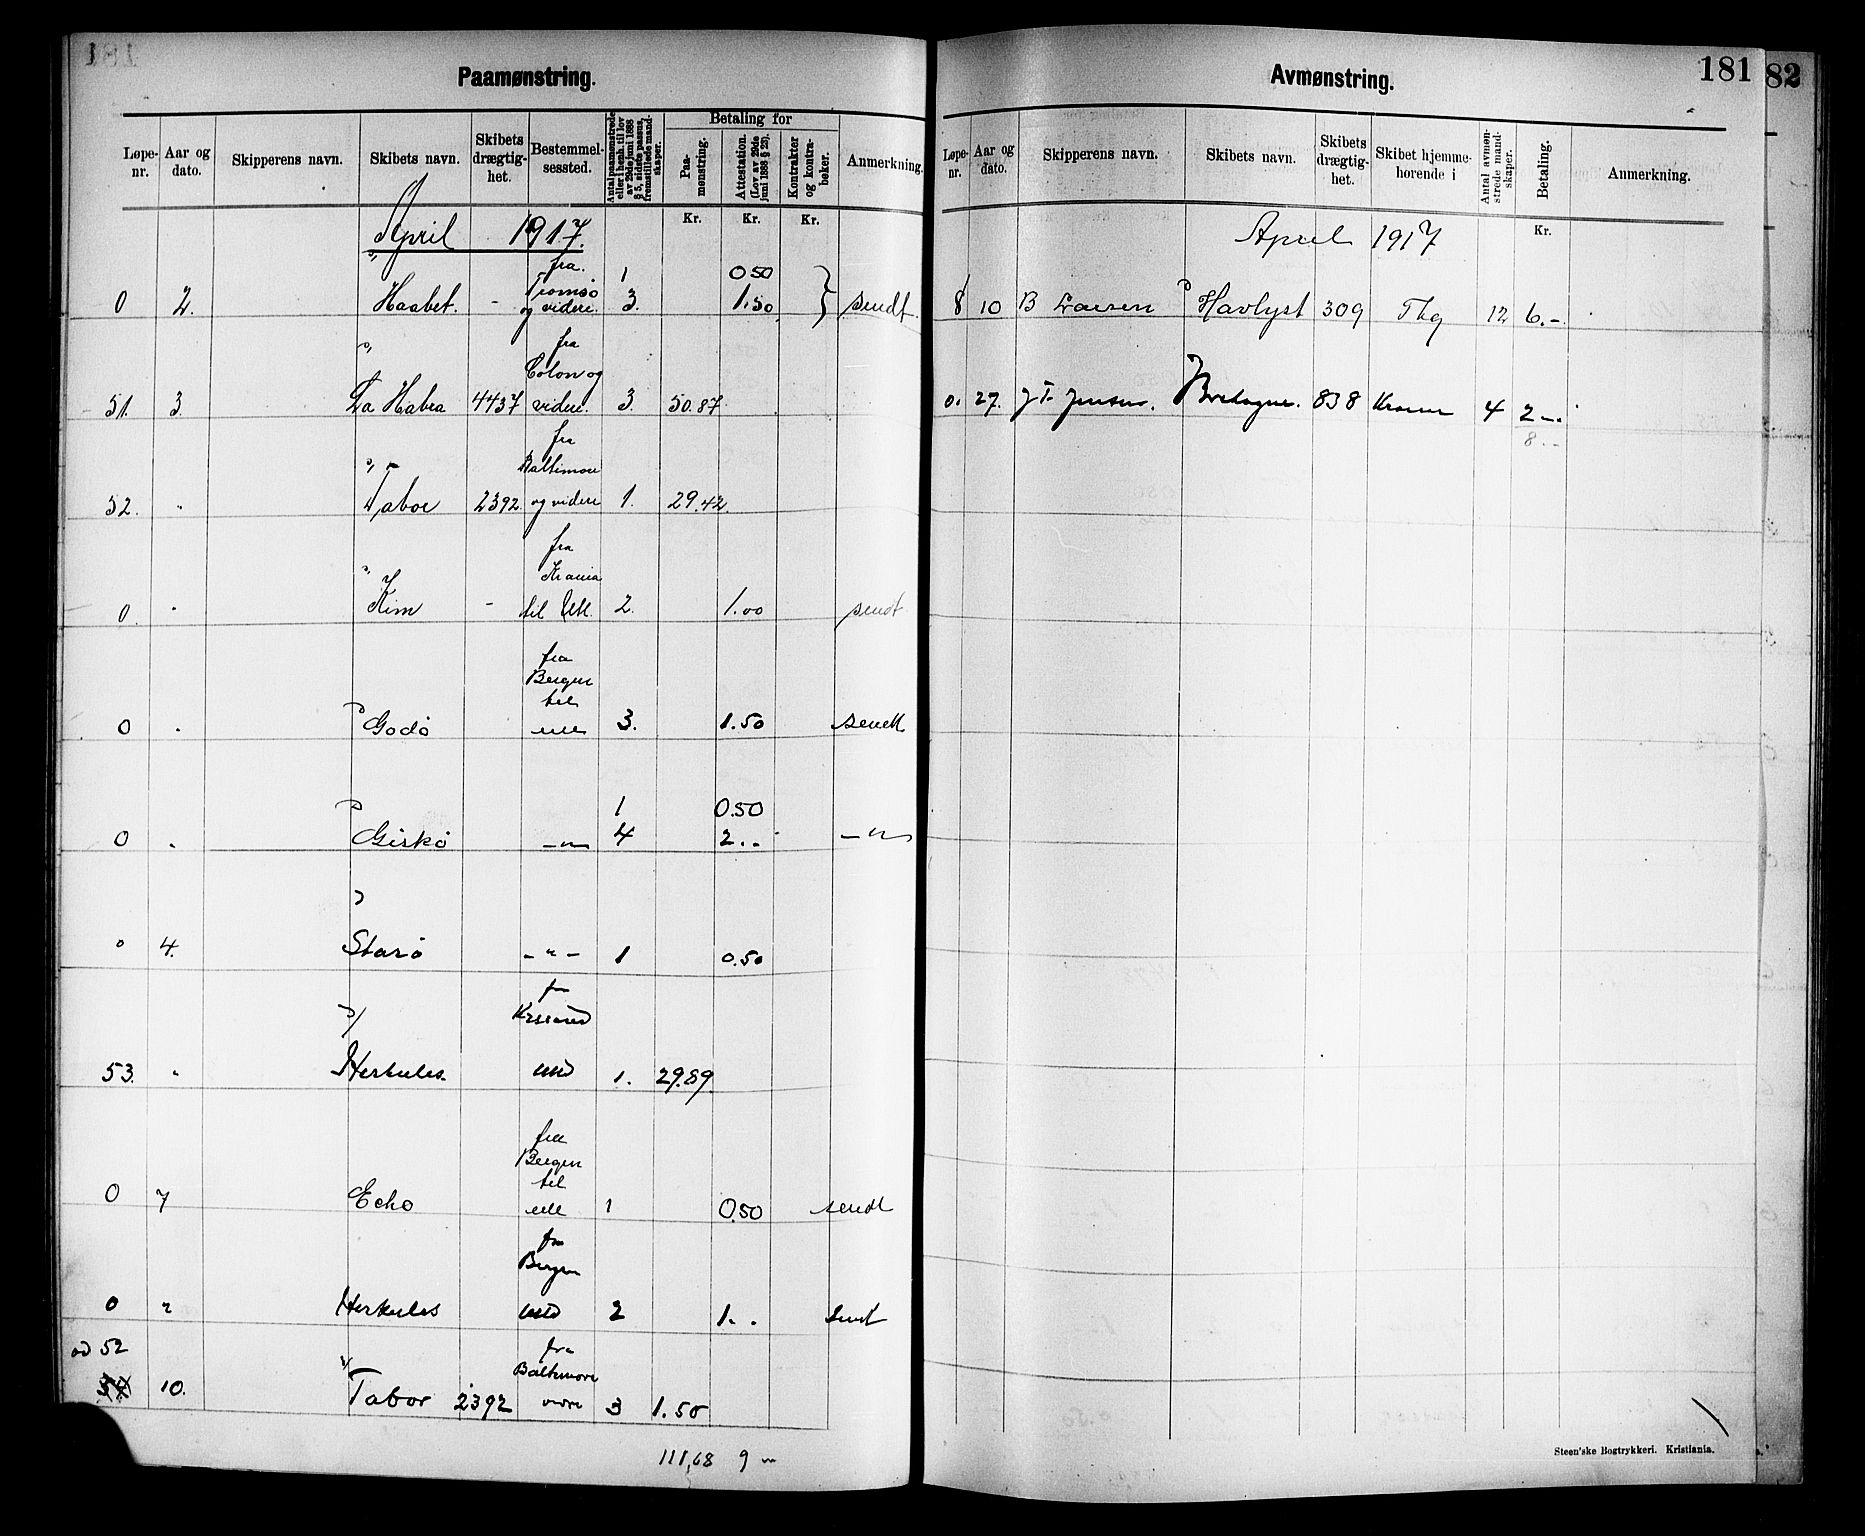 Paamønstring.
Løpe-nr. Aar og dato. Skipperens navn. Skibets navn. Skibets drægtig-het. Bestemmel-sessted. Antal paamønstrede eller i henh. til lov av 29de juni 1888 § 5, sidste passus, fremstillede mand-skaper. Betaling for Paa-mønstring. Attestation. (Lov av 29de juni 1888 § 23). Kontrakter og kontra-bøker. Anmerkning.
Kr. Kr. Kr.
April 1917.
" fra 1 0.50
0 2. Haabet. - Tromsø og videre. 3. 1.50 } sendt
" fra
Colon og
51. 3. La Habra 4437 videre. 3. 50.87
" fra
Baltimore
52. " Tabor 2392 og videre 1. 29.42.
" fra
Krania
0. " Kim - til Utl. 2. 1.00 sendt
fra
Bergen
til
0 " " Godø utl 3. 1.50 sendt
" 1 0.50
0 " Giskø -"- 4 2.- -"-
"
0 4. Starø -"- 1 0.50
" fra
Krssand
53. " Herkules. utld 1. 29.89
fra
Bergen
til
0 7 Echo utl 1 0.50 sendt
fra
Bergen
0 " Herkules utld 2 1.- sendt
ad 52 fra
Baltimore
54 10. " Tabor 2392 vidre 3 1.50
111,68 9 -
Avmønstring.
181
82
Løpe-nr. Aar og dato. Skipperens navn. Skibets navn. Skibets drægtig-het. Skibet hjemme-hørende i Antal avmøn-strede mand-skaper. Betaling. Anmerkning.
Kr.
April 1917
8 10 B Larsen " Havlyst 309 Tbg 12 6.-
0. 27. J T. Jensen. " Bretagne. 838 Krania 4 2-.
8.-
Steen'ske Bogtrykkeri. Kristiania.